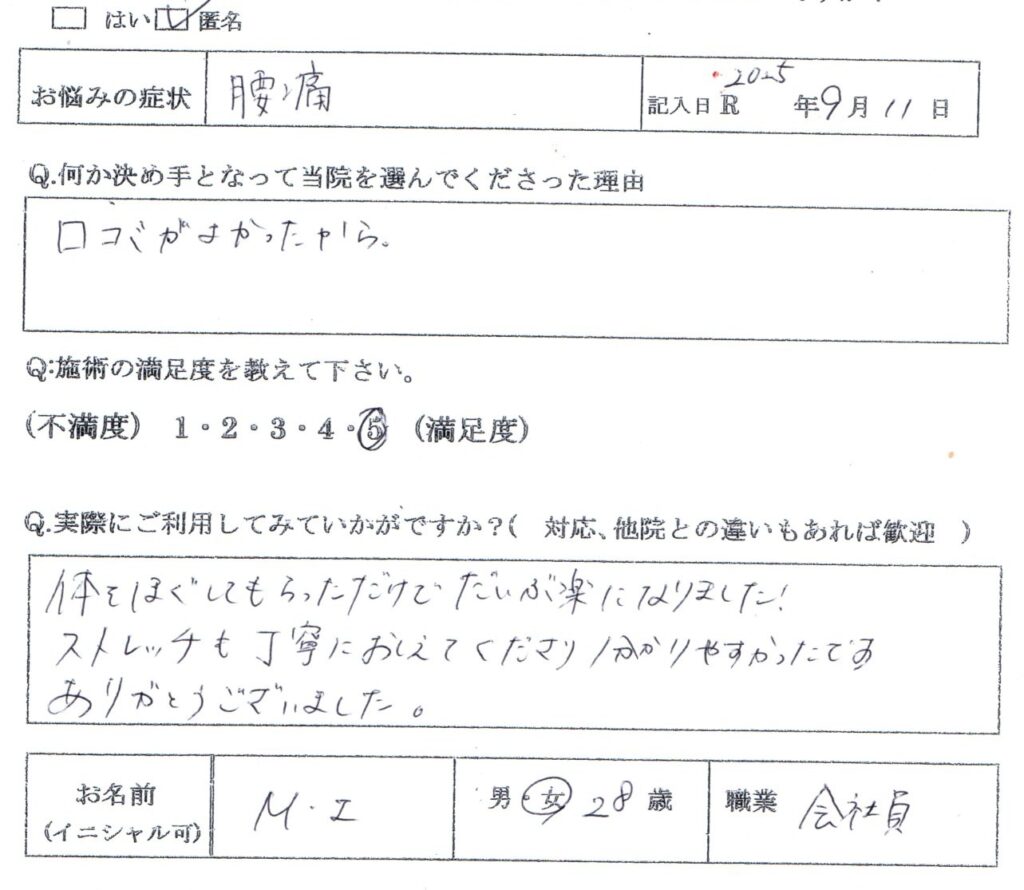 □ はい ☑ 匿名
お悩みの症状 腰痛 記入日 R 2025 年 9 月 11 日
Q.何か決め手となって当院を選んでくださった理由
口コミがよかったから。
Q:施術の満足度を教えて下さい。
(不満度) 1・2・3・4・5 (満足度)
Q.実際にご利用してみていかがですか?( 対応、他院との違いもあれば歓迎 )
体をほぐしてもらっただけでだいぶ楽になりました!
ストレッチも丁寧におしえてくださり分かりやすかったです
ありがとうございました。
お名前 M・I 男・女 28 歳 職業 会社員
(イニシャル可)